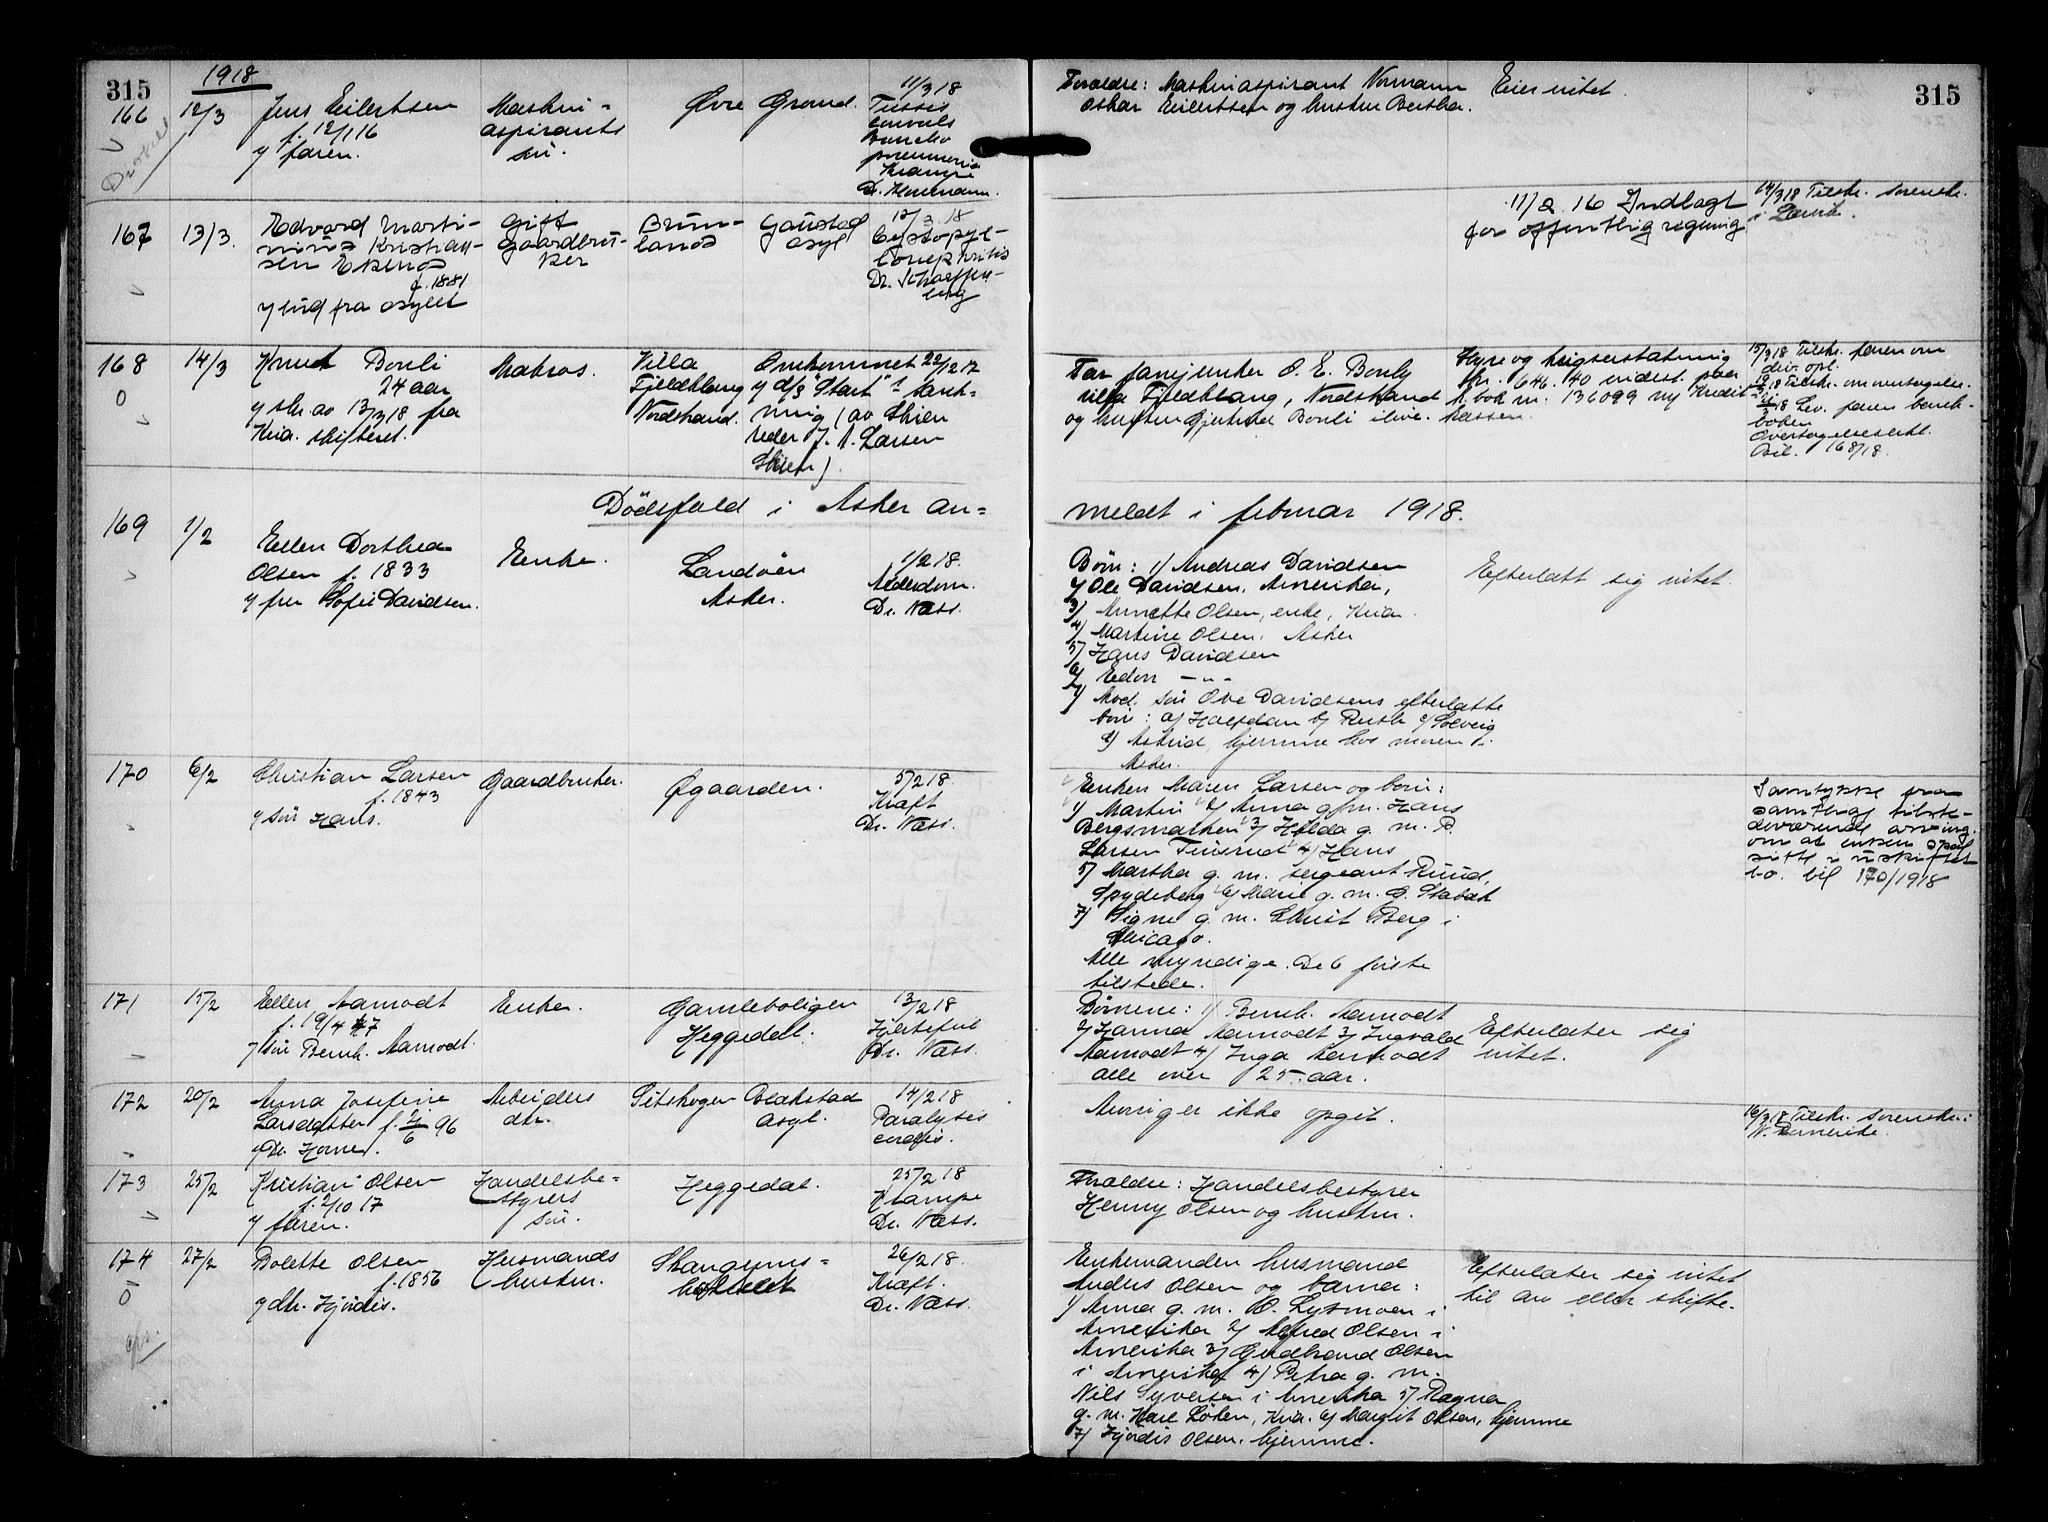 315
1918
315
166
12/3
Jens Eilertsen
f. 12/1 16
v/ faren.
Maskin-
aspirants
søn.
Øvre Grand.
11/3 18
Tussis
Broncho
pneumonia
Krampe
Forældre: Maskinaspirant Normann
Oskar Eilertsen og hustru Bertha.
Eier intet.
167
13/3.
Edvard Marti-
nius Kristian-
sen Ekerud
f. 1881
v/ ind fra asylet
Gift
gaardbru-
ker
Brun-
land
Gaustad
asyl
12/3 18
Dr. Scharffen-
berg
11/2 16 Indlagt
for offentlig regning
14/3 18 Tilskr. sorenskr.
i
168
0
14/3
Knut Bonli
24 aar
v/ skr. av 13/3 18 fra
Kria. skifteret.
Matros.
Villa
Fjeldblang
Nordstrand.
Omkommet 22/2 17
v/ d/s "Start"s senk-
ning (av Skien
reder J. A. Larsen
Skien).
Far fanejunker O. E. Bonli
villa Fjeldblang, Nordstrand
og hustru Gjertrud Bonli i live.
Hyre og krigserstatning
kr. 646.40 indest. paa
k. bok nr. 136099 Ny Kredit-
kassen.
15/3 18 Tilskr. faren om
div. opl.
18 Tilskr. om overtagelse.
18 Lev. faren bank-
boken
Overtagelseserkl.
Bil. 168/18.
Dödsfald i Asker an-
meldt i februar 1918.
169
1/2
Ellen Dorthea
Olsen f. 1833
v/ fru Sofie Davidsen.
Enke.
Landøen
Asker.
1/2 18.
Alderdom.
Dr. Næss.
Børn: 1/ Andreas Davidsen
2/ Ole Davidsen, Amerika,
3/ Annette Olsen, enke, Kria.
4/ Martine Olsen, Asker
5/ Hans Davidsen
6/ Edon -"-
7/ Avd. søn Ove Davidsens efterlatte
børn: a/ Halfdan b/ Ruth c/ Solveig
d/ Astrid, hjemme hos moren i
Asker.
Efterlatt sig intet.
170
6/2
Christian Larsen
f. 1843
v/ søn Hans.
Gaardbruker.
Øgaarden.
5/2 18.
Kræft
Dr. Næss.
Enken Maren Larsen og børn:
1/ Martin 2/ Anna g. m. Hans
Bergsmarken 3/ Hilda g. m. P.
Larsen Finsrud 4/ Hans
5/ Martha g. m. sergeant Ruud,
Spydeberg 6/ Marie g. m. G. Stabæk
7/ Signe g. m. Christ Berg i
Chicago.
Alle myndige. De 6 første
tilstede.
Samtykke fra
samtlige tilste-
deværende arving.
om at enken skal
sitte i uskiftet
bo. bil 170/1918
171
15/2
Ellen Aamodt
f. 19/4 47
v/ søn Bernh. Aamodt.
Enke.
Gamleboligen
Heggedal.
13/2 18
Hjertefeil
Dr. Næss.
Børnene: 1/ Bernh. Aamodt
2/ Hanna Aamodt 3/ Ingvald
Aamodt 4/ Inga Aamodt
alle over 25 aar.
Efterlater sig
intet.
172
20/2
Anna Josefine
Larsdatter f. 2/6 96
v/ Dr. Horne.
Arbeiders
dtr.
Sitskogen
Blakstad
asyl.
14/2 18
Paralysis
cordis.
Arvinger ikke opgit.
16/3 18 Tilskr. sorenskr. i
N. Romerike.
173
25/2
Kristian Olsen
f. 2/10 17
v/ faren.
Handelsbe-
styrers
søn.
Heggedal.
25/2 18
Krampe
Dr. Næss.
Forældre: Handelsbestyrer
Henny Olsen og hustru.
174
0
27/2
Bolette Olsen
f. 1856
v/ dtr. Hjørdis.
Husmands
hustru.
26/2 18.
Kræft.
Dr. Næss.
Enkemanden husmand
Anders Olsen og barna:
1/ Anna g. m. O. Lysmoen i
Amerika 2/ Alfred Olsen i
Amerika 3/ Gudbrand Olsen
i Amerika 4/ Petra g. m.
Nils Syversen i Amerika 5/ Ragna
g. m. Karl Løken, Kria. 6/ Margit Olsen, hjemme
7/ Hjørdis Olsen, hjemme.
Efterlater sig intet
til arv eller skifte.